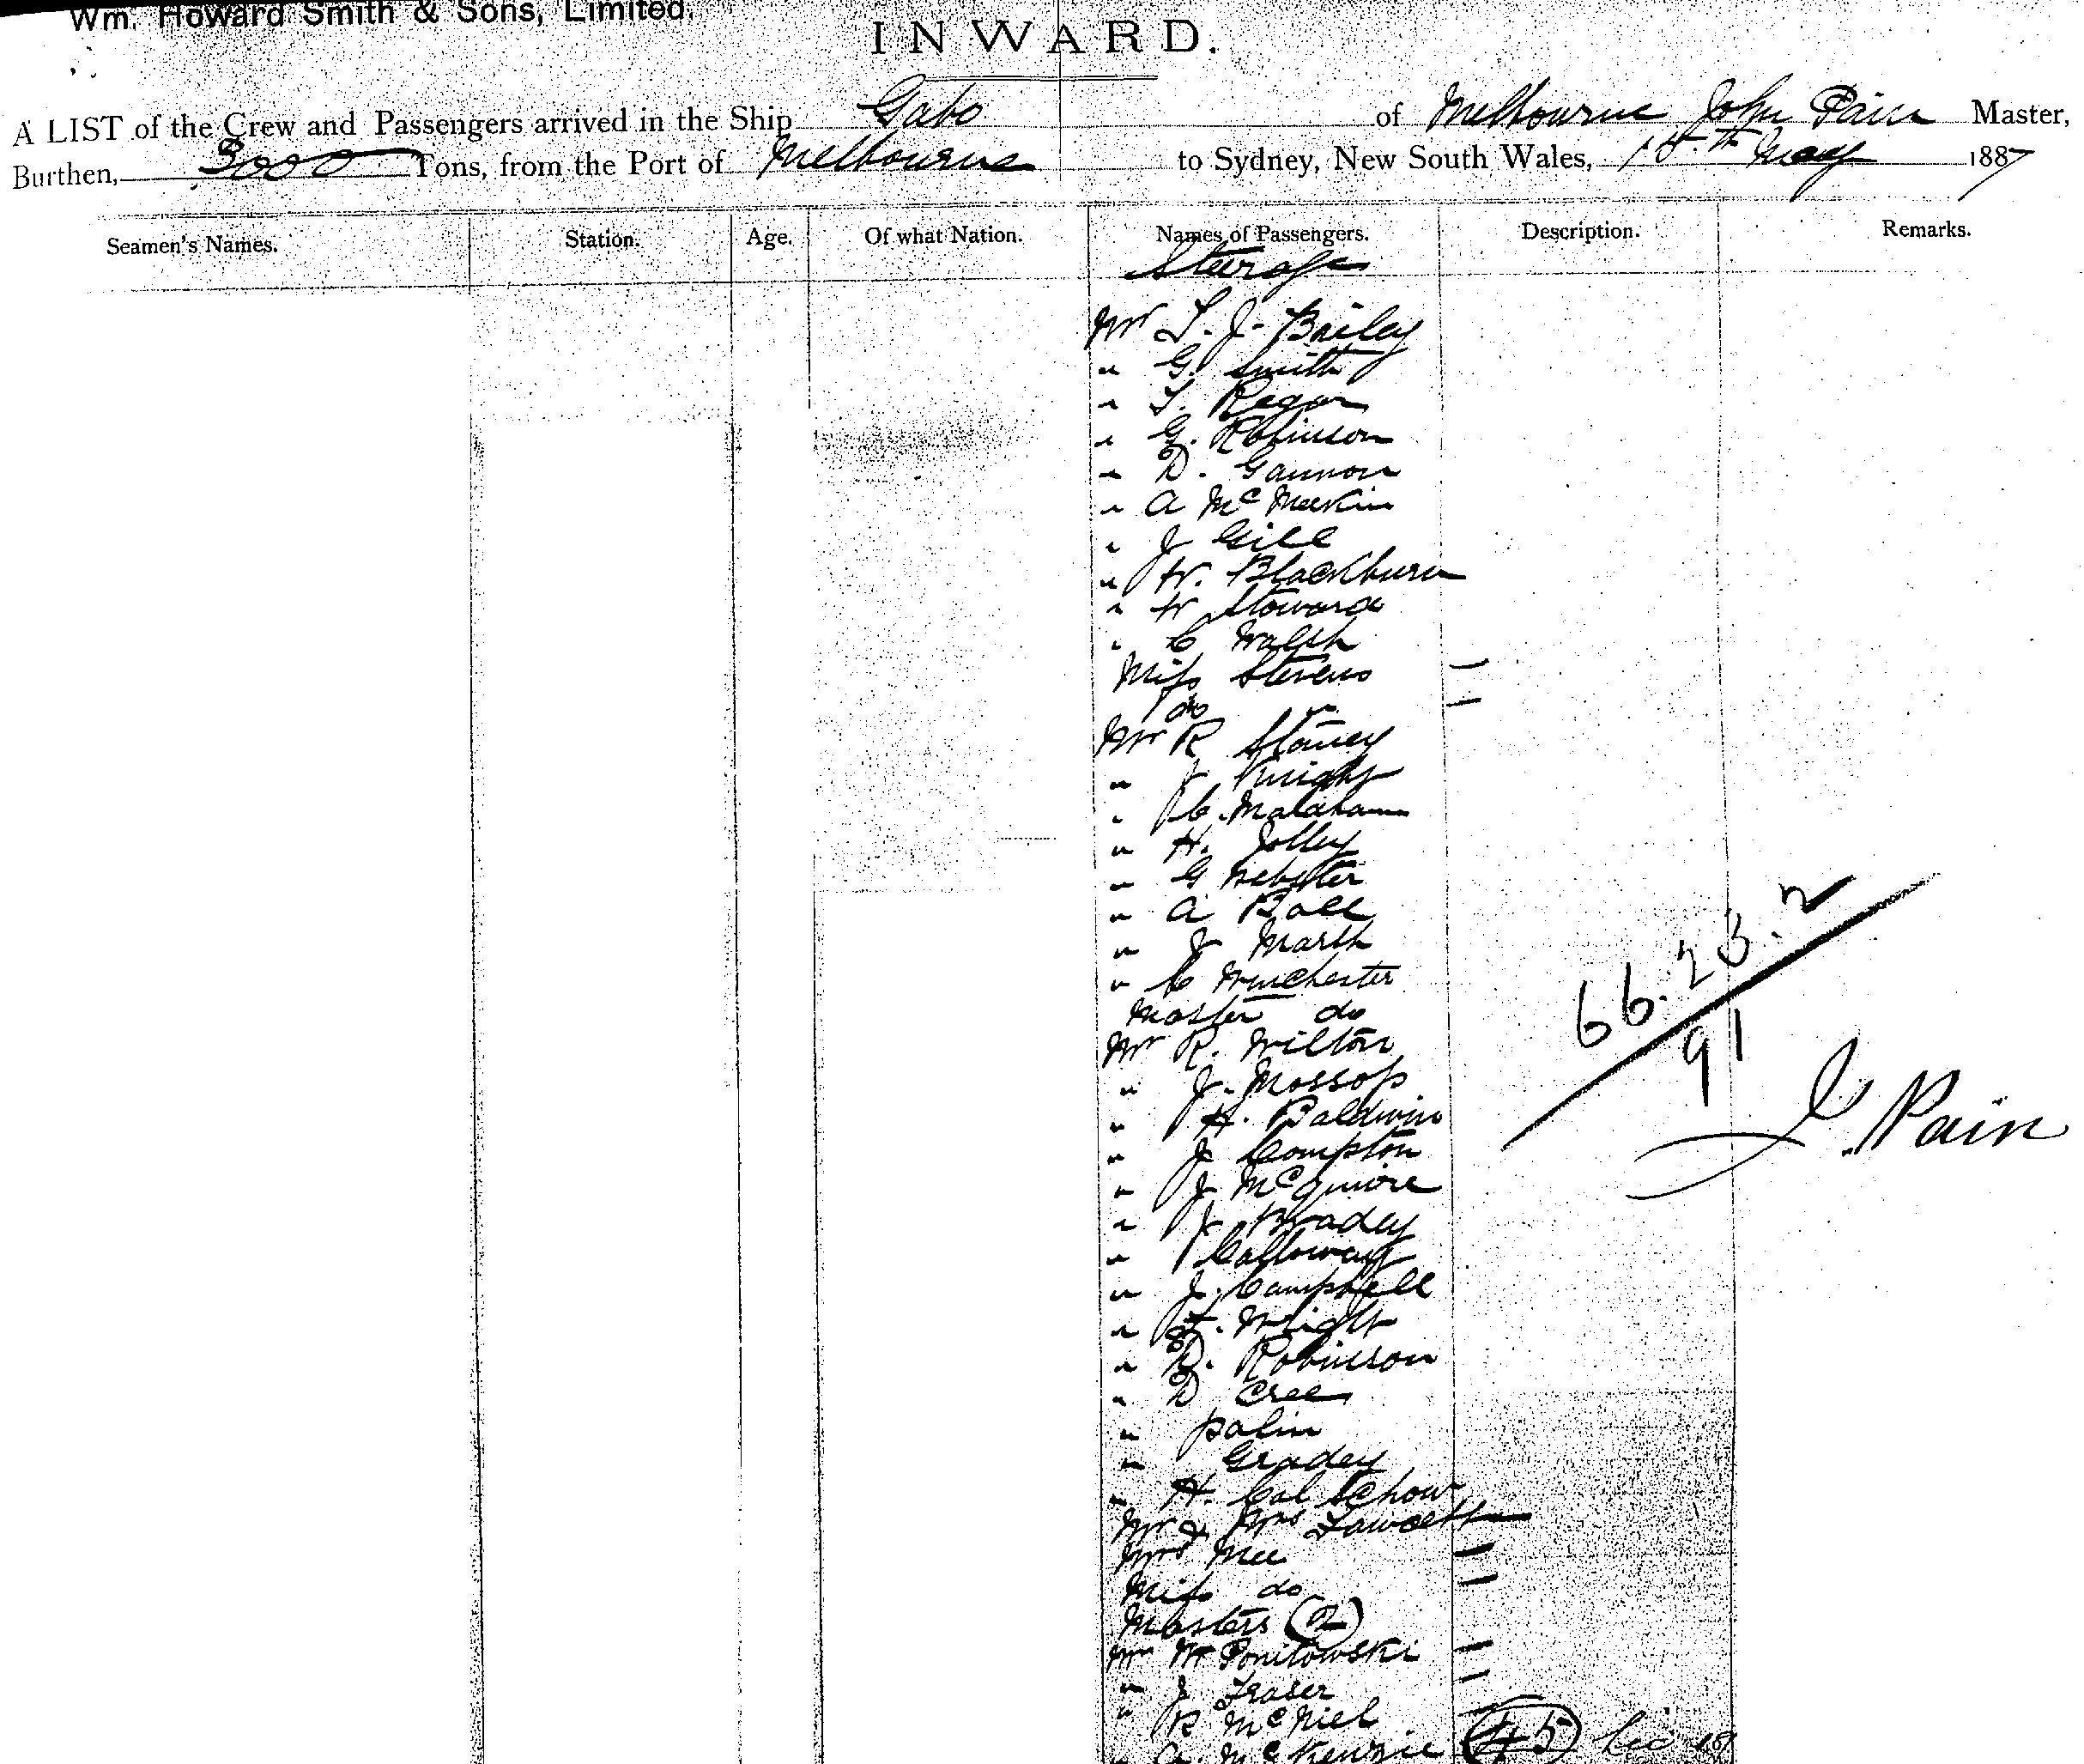 Wm. Howard Smith & Sons, Limited.
INWARD.
A LIST of the Crew and Passengers arrived in the Ship Gabo of Melbourne John Pain Master,
Burthen, 3000 Tons, from the Port of Melbourne to Sydney, New South Wales, 15th May 1887
Seamen's Names. Station. Age. Of what Nation. Names of Passengers. Description. Remarks.
Steerage
Mr T. J. Bailey
" G. Smith
" T. Regan
" G. Robinson
" D. Gannon
" A McMeekin
" J Gill
" W. Blackburn
" W Stoward
" C Walsh
Miss Stevens
do
Mr R Stoney
" J Knight
" C. Malaham
" H. Jolley
" G Webster
" A Ball
" J Marsh
" C Winchester
Master do
Mr R. Wilton
" J. Mossop
" H. Baldwin
" J Compton
" J McGuire
" J Bradey
" Calloway
" J. Campbell
" F. Wright
" D. Robinson
" D Cree
" Palin
" Gradey
" H. Cal Schow
Mr & Mrs Fawcett
Mrs Mee
Miss do
Masters (2)
Mr W Ponitowski
" J Fraser
" R McNiel
" A. McKenzie 45
66.23.2
91
J. Pain